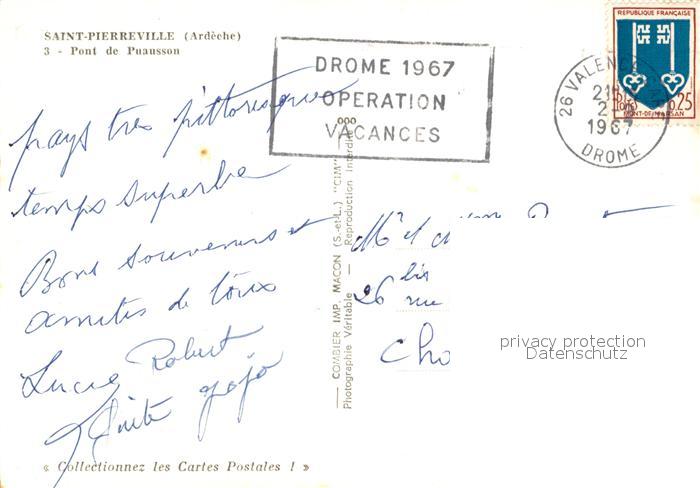 SAINT-PIERREVILLE (Ardèche)
3 - Pont de Puausson
DROME 1967
OPERATION
VACANCES
REPUBLIQUE FRANÇAISE
0,25
MONT-DE-MARSAN
26 VALENCE
21H
2
1967
DROME
pays très pittoresque
temps superbe
Bons souvenirs et
amitiés de tous
Lucie Robert
gojo
Mr et
26 bis rue
Cho
— COMBIER IMP. MACON (S.-et-L.) "CIM"
Photographie Véritable — Reproduction Interdite
privacy protection
Datenschutz
« Collectionnez les Cartes Postales ! »